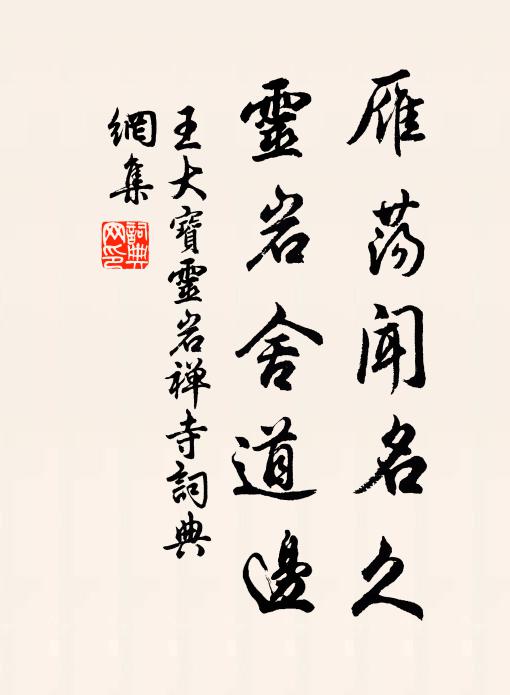 雁荡闻名久
靈岩舍道邊
王大寶靈岩禅寺詞典
網集
詞典
网印